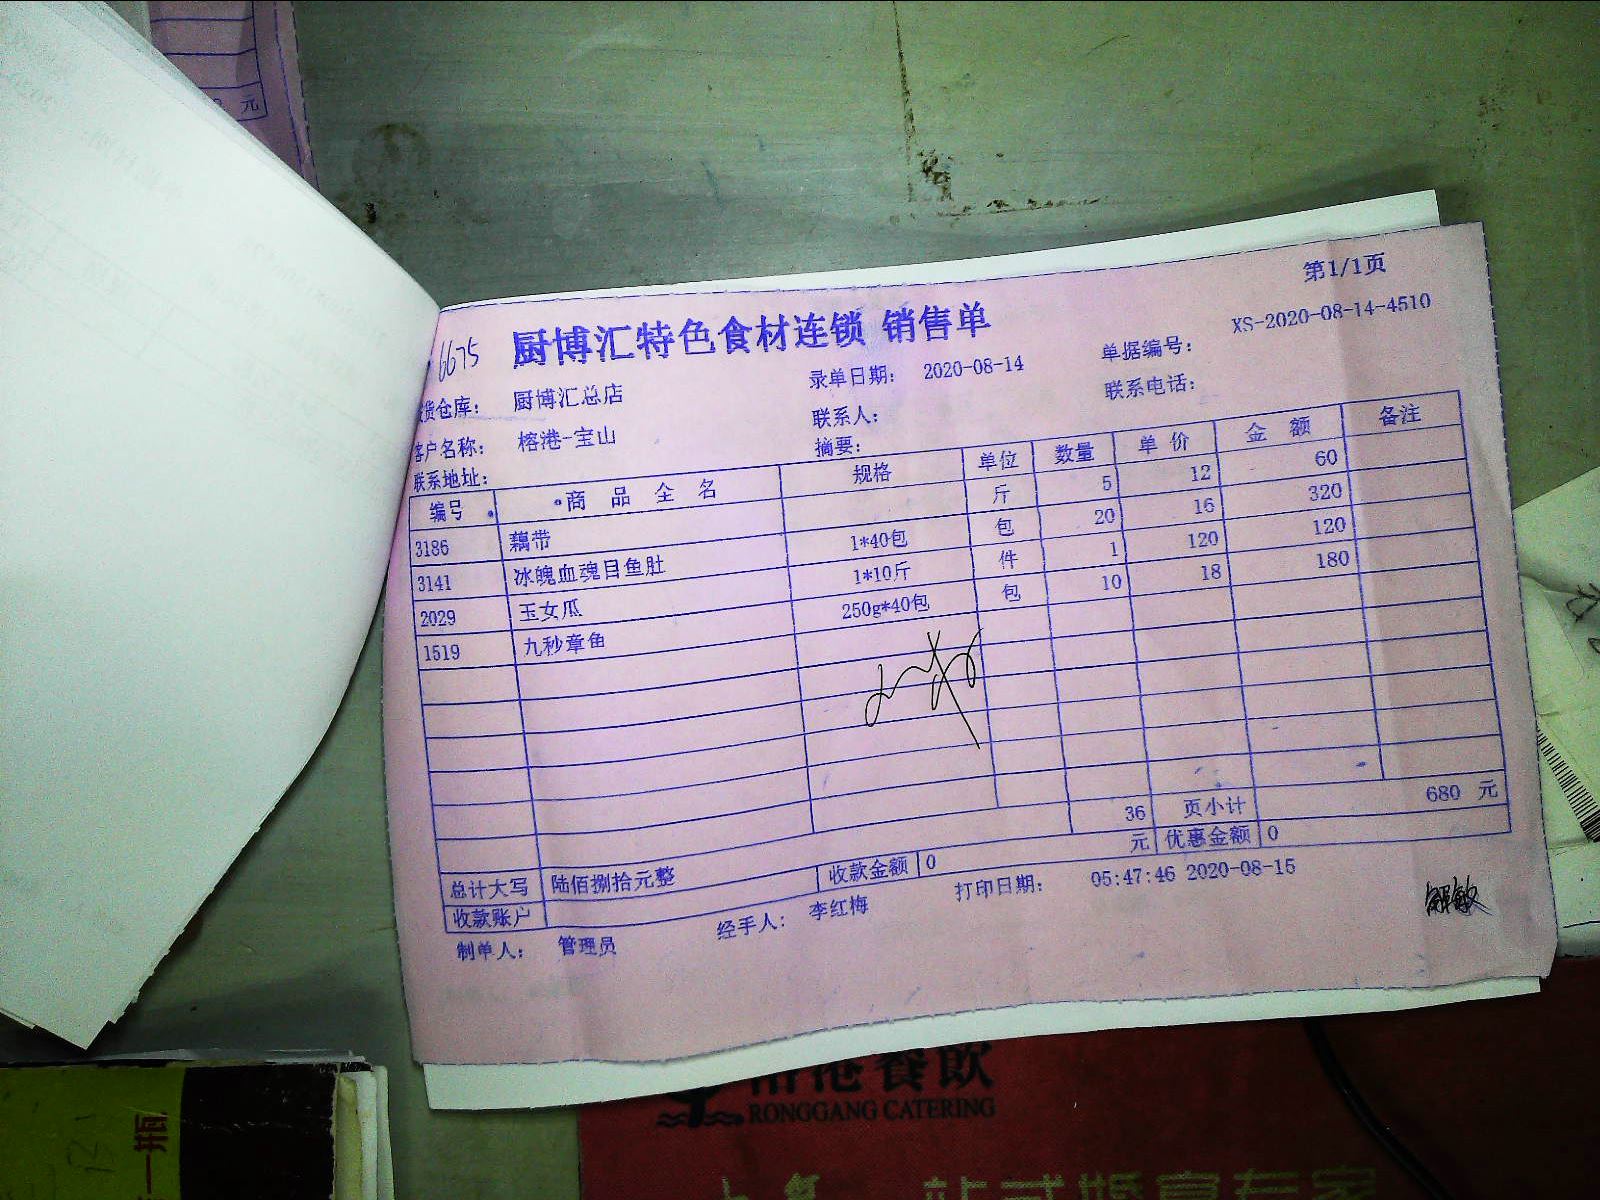 元
第1/1页
6675
厨博汇特色食材连锁 销售单
XS-2020-08-14-4510
货仓库： 厨博汇总店 录单日期： 2020-08-14 单据编号：
客户名称： 榕港-宝山 联系人： 联系电话：
联系地址： 摘要：
编号 商品全名 规格 单位 数量 单价 金额 备注
3186 藕带 斤 5 12 60
3141 冰魄血魂目鱼肚 1*40包 包 20 16 320
2029 玉女瓜 1*10斤 件 1 120 120
1519 九秒章鱼 250g*40包 包 10 18 180
36 页小计 680 元
总计大写 陆佰捌拾元整 收款金额 0 元 优惠金额 0
收款账户
制单人： 管理员 经手人： 李红梅 打印日期： 05:47:46 2020-08-15
港餐飲
RONGGANG CATERING
一瓶